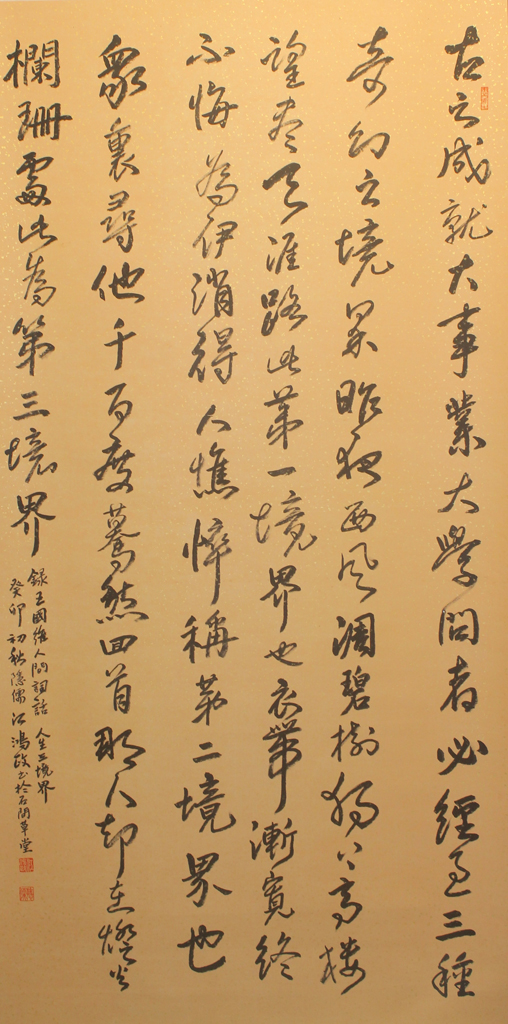 古之成就大事業大學問者必經過三種
奇幻之境界昨夜西風凋碧樹獨上高樓
望盡天涯路此第一境界也衣帶漸寬終
不悔為伊消得人憔悴稱第二境界也
眾裏尋他千百度驀然回首那人却在燈火
欄珊處此為第三境界
錄王國維人間詞話人生三境界
癸卯初秋隱儒江鴻政書於石閒草堂